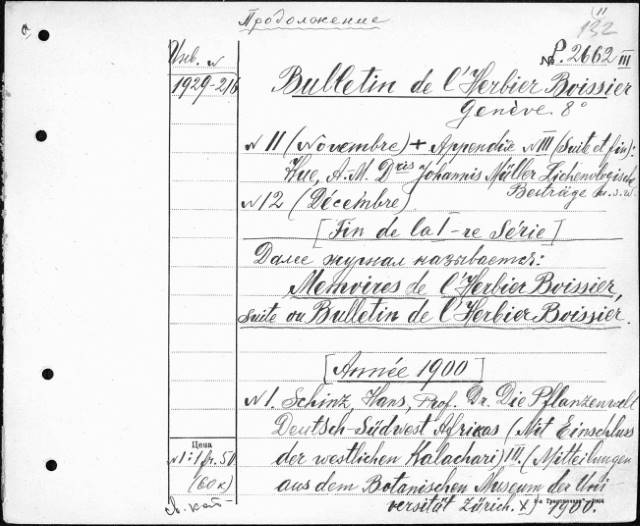 Продолжение
(11
132
Инв. №
№ P. 2662 III
1929-216
Bulletin de l'Herbier Boissier
Genève. 8°
N 11 (Novembre) + Appendix N III (Suite et fin):
Hue, A.M. Dris Johannis Müller Lichenologische
Beiträge u.s.w
N 12 (Décembre)
[Fin de la I-re Série]
Далее журнал называется:
Memoires de l'Herbier Boissier,
suite au Bulletin de l'Herbier Boissier.
[Année 1900]
N 1. Schinz, Hans, Prof. Dr. Die Pflanzenwelt
Deutsch-Südwest Afrikas (Mit Einschluss
Цена
N 1: 1 fr. 50
der westlichen Kalachari) III. (Mitteilungen
(60 к)
aus dem Botanischen Museum der Uni-
versität Zürich. X) 1900.